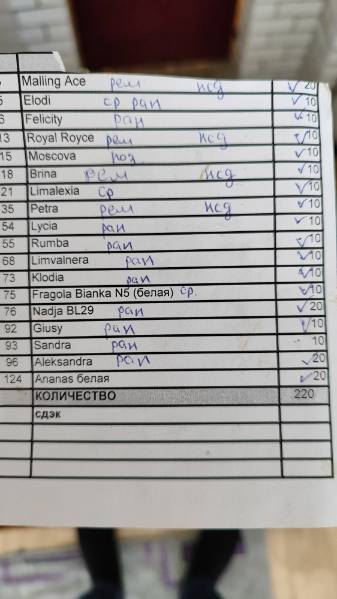 Malling Ace рем нсд ✓ 20
5 Elodi ср ран ✓ 10
6 Felicity ран ✓ 10
13 Royal Royce рем нсд ✓ 10
15 Moscova поз ✓ 10
18 Brina рем нсд ✓ 10
21 Limalexia ср ✓ 10
35 Petra рем нсд ✓ 10
54 Lycia ран ✓ 10
55 Rumba ран ✓ 10
68 Limvalnera ран ✓ 10
73 Klodia ран ✓ 10
75 Fragola Bianka N5 (белая) ср. ✓ 10
76 Nadja BL29 ран ✓ 20
92 Giusy ран ✓ 10
93 Sandra ран 10
96 Aleksandra ран ✓ 20
124 Ananas белая ✓ 20
КОЛИЧЕСТВО 220
сдэк